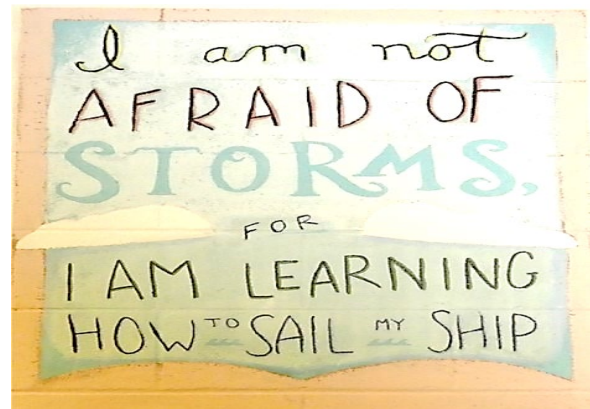 I am not
AFRAID OF
STORMS,
FOR
I AM LEARNING
HOW TO SAIL MY SHIP